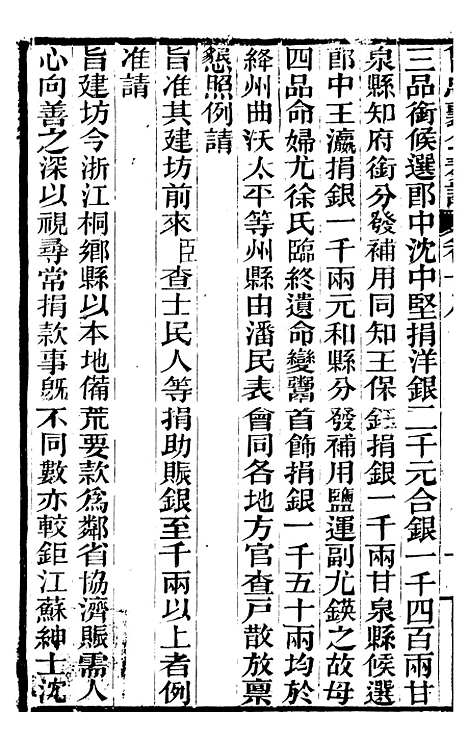 三品銜候選郎中沈中堅捐洋銀二千元合銀一千四百兩甘
泉縣知府銜分發補用同知王保鈺捐銀一千兩甘泉縣候選
郎中王瀛捐銀一千兩元和縣分發補用鹽運副尤鍈之故母
四品命婦尤徐氏臨終遺命變鬻首飾捐銀一千五十兩均於
絳州曲沃太平等州縣由潘民表會同各地方官查戸散放稟
懇照例請
旨准其建坊前來臣查士民人等捐助賑銀至千兩以上者例
准請
旨建坊今浙江桐鄉縣以本地備荒要款爲鄰省協濟賑需人
心向善之深以視尋常捐款事旣不同數亦較鉅江蘇紳士沈